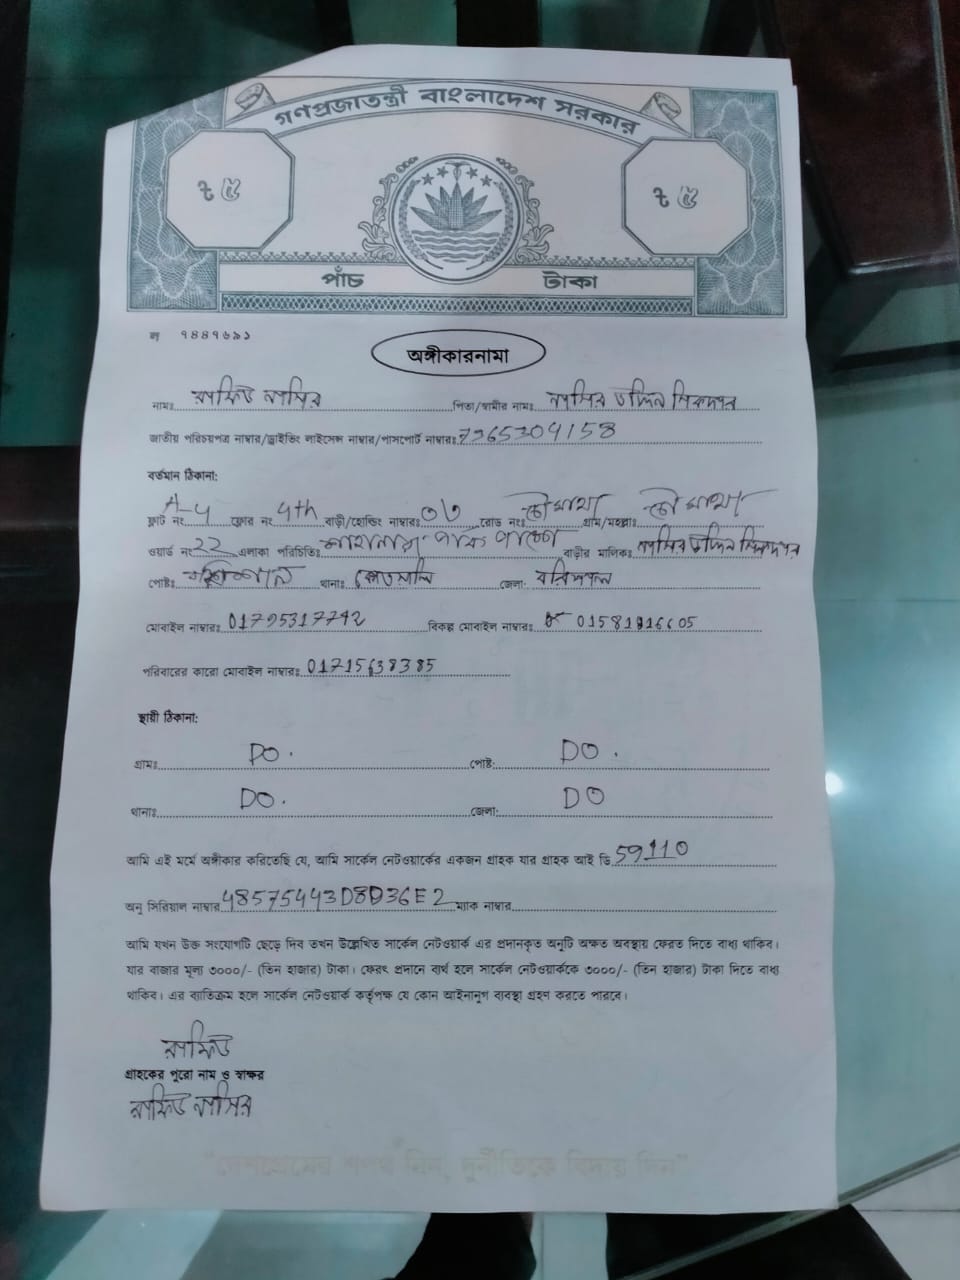 গণপ্রজাতন্ত্রী বাংলাদেশ সরকার
৳ ৫ ৳ ৫
পাঁচ টাকা
ল ৭৪৪৭৬৯১
অঙ্গীকারনামা
নামঃ রাফিউ নাসির পিতা/স্বামীর নাম: নাসির উদ্দিন সিকদার
জাতীয় পরিচয়পত্র নাম্বার/ড্রাইভিং লাইসেন্স নাম্বার/পাসপোর্ট নাম্বারঃ 7965304158
বর্তমান ঠিকানা:
ফ্লাট নং A-4 ফ্লোর নং 4th বাড়ী/হোল্ডিং নাম্বারঃ রোড নং: চৌমাথা গ্রাম/মহল্লা: চৌমাথা
ওয়ার্ড নং 22 এলাকা পরিচিতি: পার্ক পাশে বাড়ীর মালিক: নাসির উদ্দিন সিকদার
পোষ্ট: থানাঃ কোতয়ালি জেলা: বরিশাল
মোবাইল নাম্বারঃ 01795317742 বিকল্প মোবাইল নাম্বারঃ 01581816605
পরিবারের কারো মোবাইল নাম্বারঃ 01715638385
স্থায়ী ঠিকানা:
গ্রামঃ DO. পোষ্ট: DO.
থানাঃ DO. জেলা: DO
আমি এই মর্মে অঙ্গীকার করিতেছি যে, আমি সার্কেল নেটওয়ার্কের একজন গ্রাহক যার গ্রাহক আই ডি 59110
অনু সিরিয়াল নাম্বার 48575443D8D36E2 ম্যাক নাম্বার
আমি যখন উক্ত সংযোগটি ছেড়ে দিব তখন উল্লেখিত সার্কেল নেটওয়ার্ক এর প্রদানকৃত অনুটি অক্ষত অবস্থায় ফেরত দিতে বাধ্য থাকিব।
যার বাজার মূল্য ৩০০০/- (তিন হাজার) টাকা। ফেরৎ প্রদানে ব্যর্থ হলে সার্কেল নেটওয়ার্ককে ৩০০০/- (তিন হাজার) টাকা দিতে বাধ্য
থাকিব। এর ব্যতিক্রম হলে সার্কেল নেটওয়ার্ক কর্তৃপক্ষ যে কোন আইনানুগ ব্যবস্থা গ্রহণ করতে পারবে।
রাফিউ
গ্রাহকের পুরো নাম ও স্বাক্ষর
রাফিউ নাসির
"দেশপ্রেমের শপথ নিন, দুর্নীতিকে বিদায় দিন"